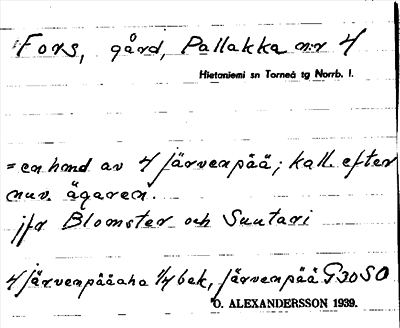 Fors, gård, Pallakka n:r 4
Hietaniemi sn Torneå tg Norrb. l.
= en hmd av 4 Järvenpää; kall. efter
nuv. ägaren.
jfr Blomster och Suutari
4 Järvenpääaha 1/4 bek, Järvenpää G30SO
O. ALEXANDERSSON 1939.